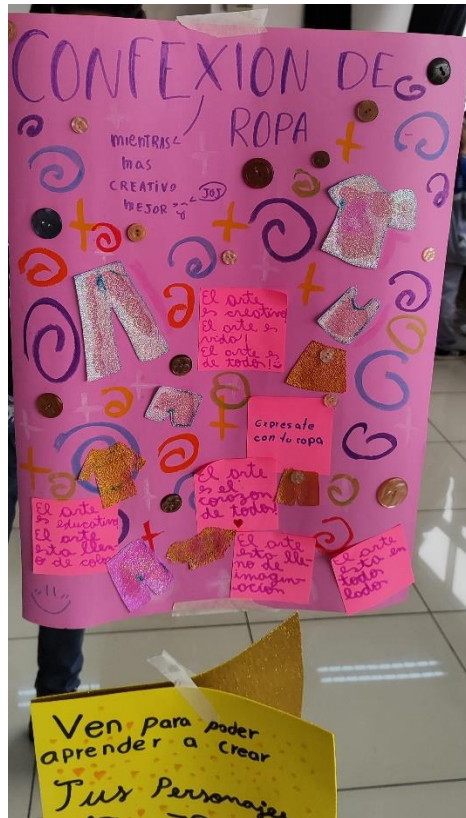 CONFEXION DE
ROPA
mienTRAS
mas
CREATIVO
MEJOR
JOJ
El arte
es creativo!
El arte es
vida!
El arte es
de todos!
Expresate
con tu ropa
El arte
es el
corazon
de todo!
El arte
es educativo
El arte
esta llen
o de color
El arte
esta lle-
no de
imagin-
ación
El arte
esta en
todos
lados
Ven para poder
aprender a crear
Tus Personajes